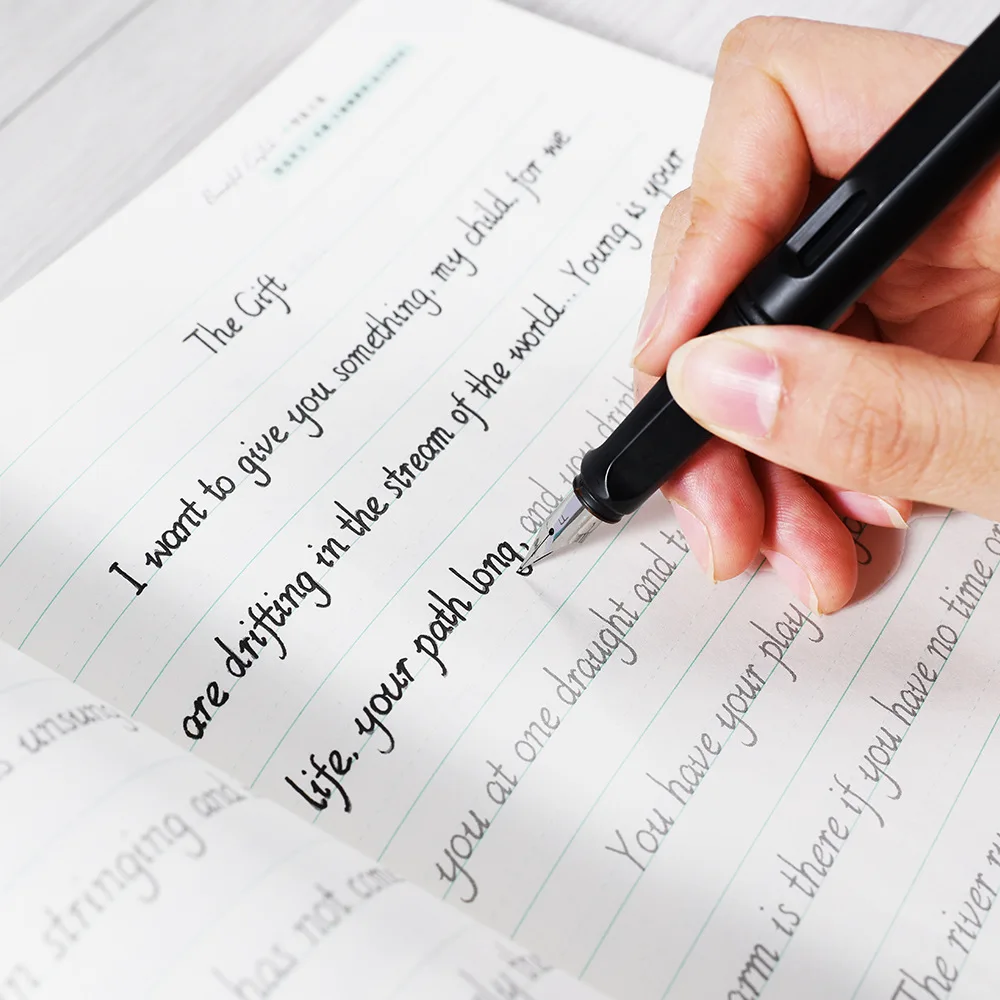 The Gift
I want to give you something, my child, for we
are drifting in the stream of the world.. Young is your
life, your path long, and you drink
you at one draught and
You have your play
is there if you have no time
The river
stringing and
has not